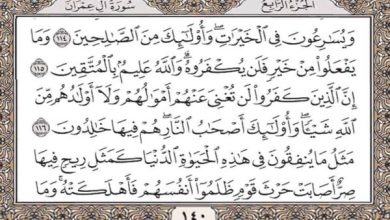 الجُزْءُ الرَّابِعُ سُورَةُ آلِ عِمْرَانَ
وَيُسَٰرِعُونَ فِي ٱلْخَيْرَٰتِۖ وَأُو۟لَٰٓئِكَ مِنَ ٱلصَّٰلِحِينَ ١١٤ وَمَا
يَفْعَلُوا۟ مِنْ خَيْرٍ فَلَن يُكْفَرُوهُۗ وَٱللَّهُ عَلِيمٌۢ بِٱلْمُتَّقِينَ ١١٥
إِنَّ ٱلَّذِينَ كَفَرُوا۟ لَن تُغْنِيَ عَنْهُمْ أَمْوَٰلُهُمْ وَلَآ أَوْلَٰدُهُم مِّنَ
ٱللَّهِ شَيْـًٔاۖ وَأُو۟لَٰٓئِكَ أَصْحَٰبُ ٱلنَّارِۚ هُمْ فِيهَا خَٰلِدُونَ ١١٦
مَثَلُ مَا يُنفِقُونَ فِي هَٰذِهِ ٱلْحَيَوٰةِ ٱلدُّنْيَا كَمَثَلِ رِيحٍ فِيهَا
صِرٌّ أَصَابَتْ حَرْثَ قَوْمٍ ظَلَمُوٓا۟ أَنفُسَهُمْ فَأَهْلَكَتْهُۚ وَمَا
١٤٠